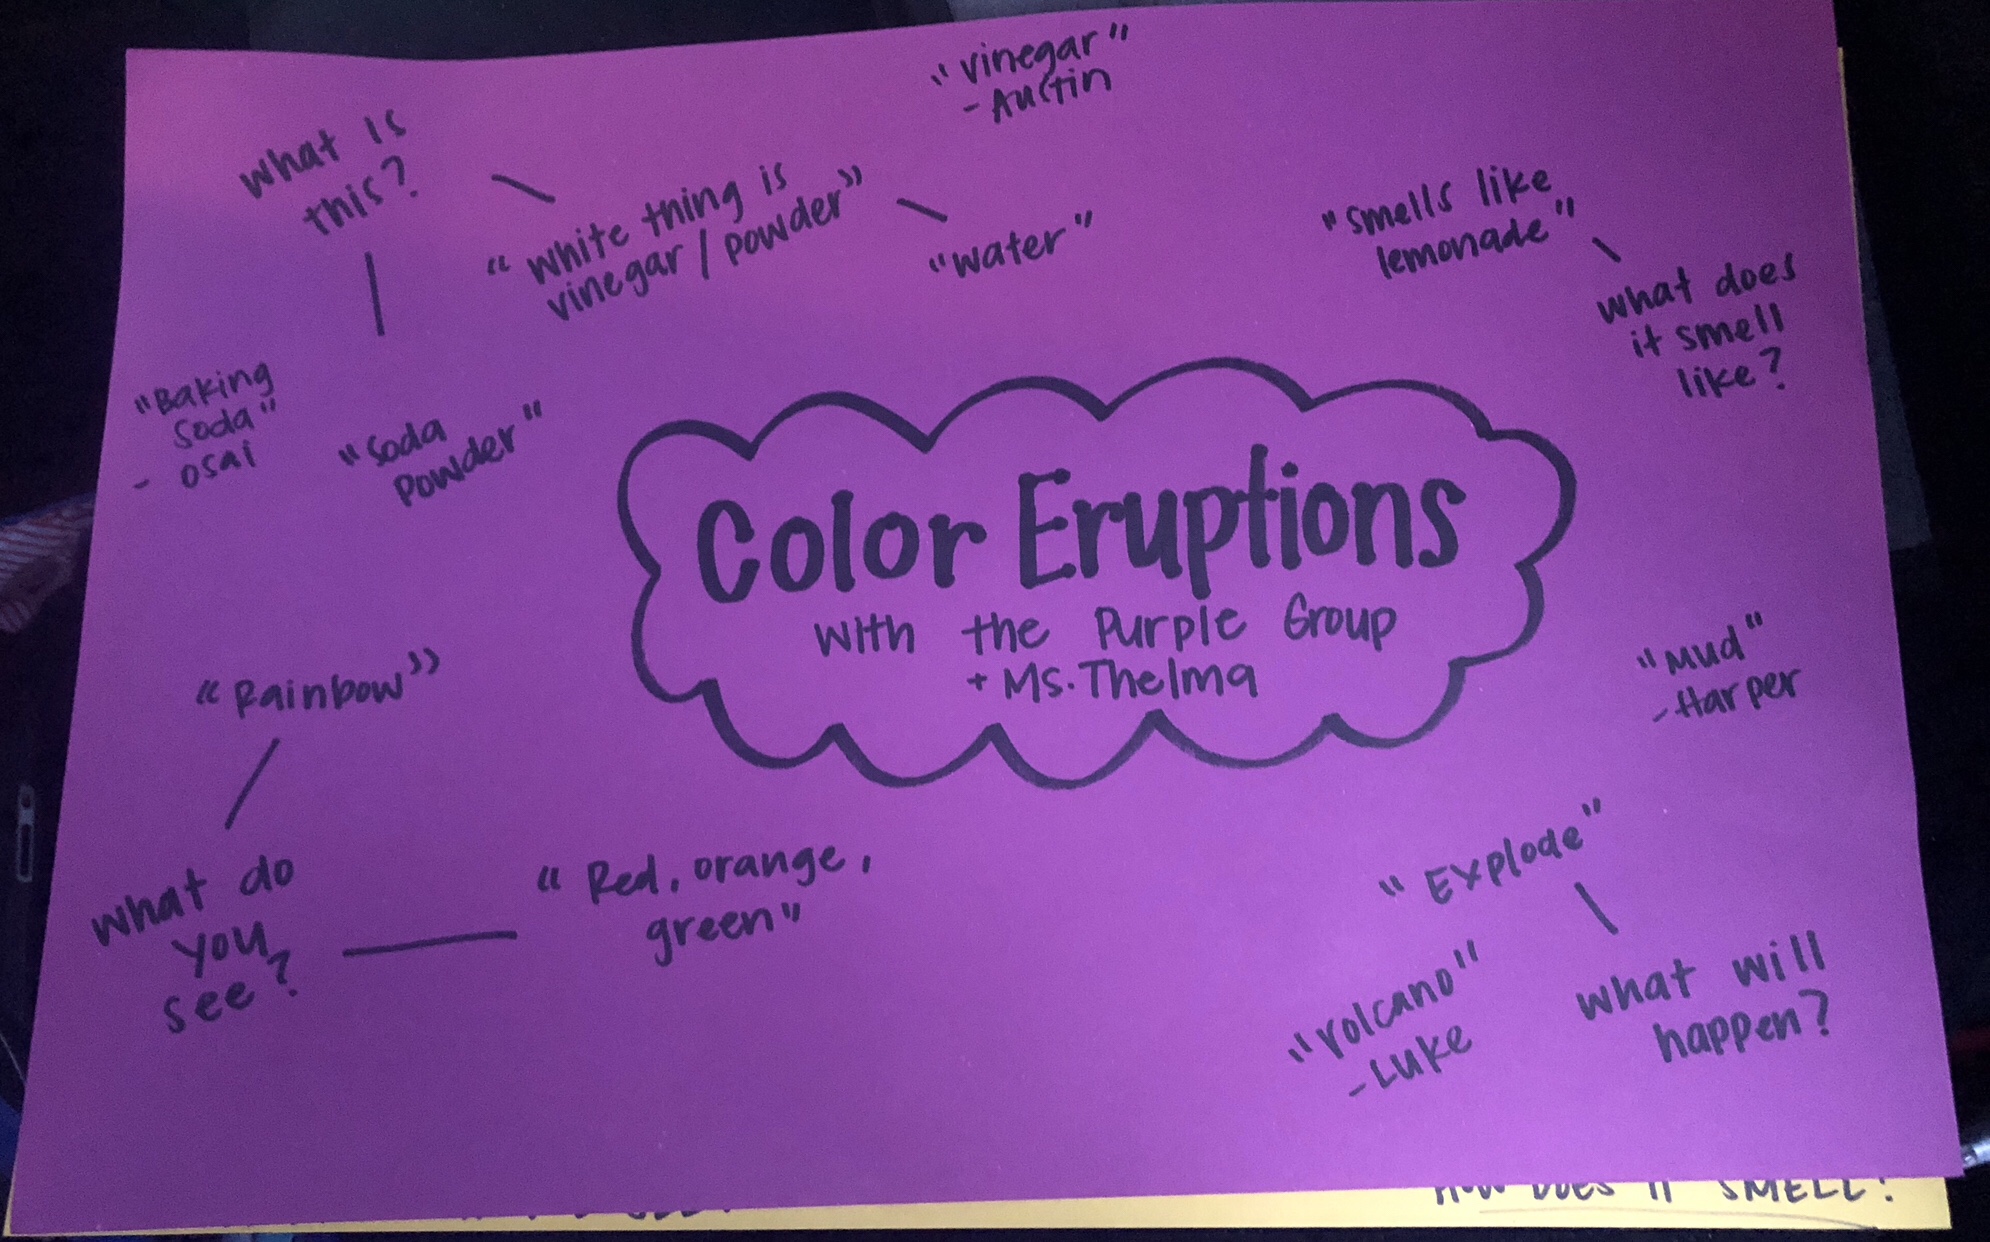 "vinegar"
- Austin
What is
this?
"White thing is
vinegar / powder"
"water"
"smells like
lemonade"
What does
it smell
like?
"Baking
Soda"
- Osai
"Soda
Powder"
Color Eruptions
With the Purple Group
+ Ms. Thelma
"Rainbow"
"Mud"
- Harper
What do
you
see?
"Red, orange,
green"
"Explode"
"Volcano"
- Luke
What will
happen?
HOW DOES IT SMELL?